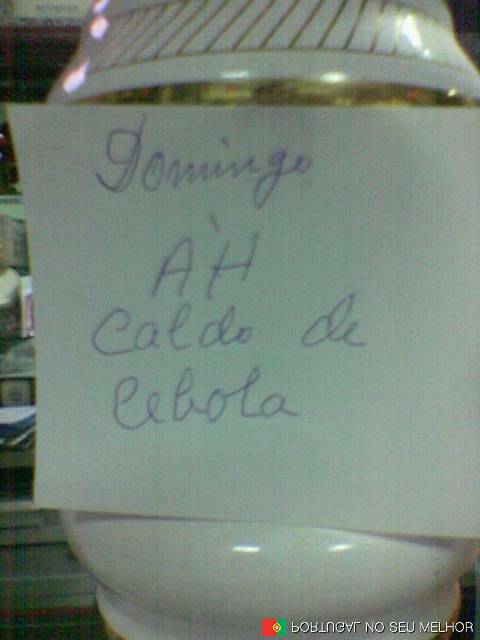 Domingo
À H
Caldo de
Cebola
PORTUGAL NO SEU MELHOR